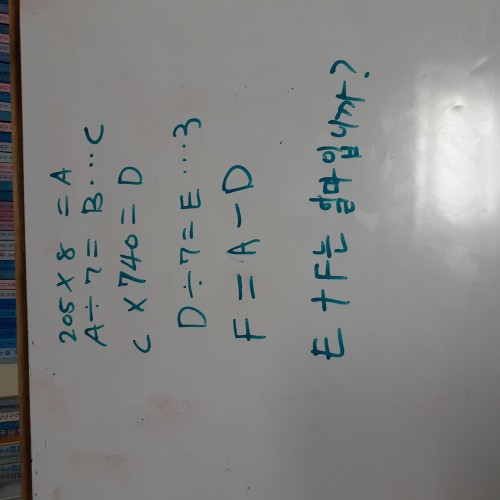 205 × 8 = A
A ÷ 7 = B ··· C
C × 740 = D
D ÷ 7 = E ··· 3
F = A - D
E + F는 얼마입니까?